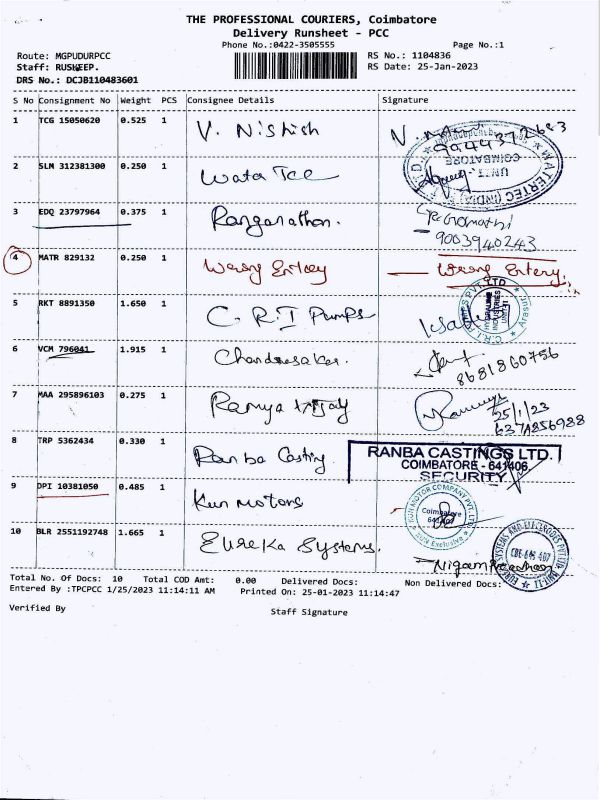 THE PROFESSIONAL COURIERS, Coimbatore
Delivery Runsheet - PCC
Phone No.:0422-3505555 Page No.:1
Route: MGPUDURPCC RS No.: 1104836
Staff: RUSKEEP. RS Date: 25-Jan-2023
DRS No.: DCJB110483601
S No Consignment No Weight PCS Consignee Details Signature
1 TCG 15050620 0.525 1 V. Nishish
9944372683
WATERTEC (INDIA)
UNIT
COIMBATORE
2 SLM 312381300 0.250 1 Wata Tec
3 EDQ 23797964 0.375 1 Ranganathan.
9003940243
4 MATR 829132 0.250 1 Wrong Entrey Wrong Entery
5 RKT 8891350 1.650 1 C.R.I Pumps
C.R.I. PUMPS PVT. LTD
INDUSTRIES
6 VCM 796041 1.915 1 Chandrasekar.
8681860756
7 MAA 295896103 0.275 1 Ramya Vijay
25/1/23
6374856988
8 TRP 5362434 0.330 1 Ranba Casting
RANBA CASTINGS LTD.
COIMBATORE - 641406
SECURITY
9 DPI 10381050 0.485 1 Kun Motors
KUN MOTOR COMPANY PVT. LTD
Coimbatore
641407
KUN Exclusive
10 BLR 2551192748 1.665 1 Eureka Systems.
EUREKA SYSTEMS AND ELECTRODES PVT LTD UNIT-II
CBE-641 407
Total No. Of Docs: 10 Total COD Amt: 0.00 Delivered Docs: Non Delivered Docs:
Entered By :TPCPCC 1/25/2023 11:14:11 AM Printed On: 25-01-2023 11:14:47
Verified By Staff Signature